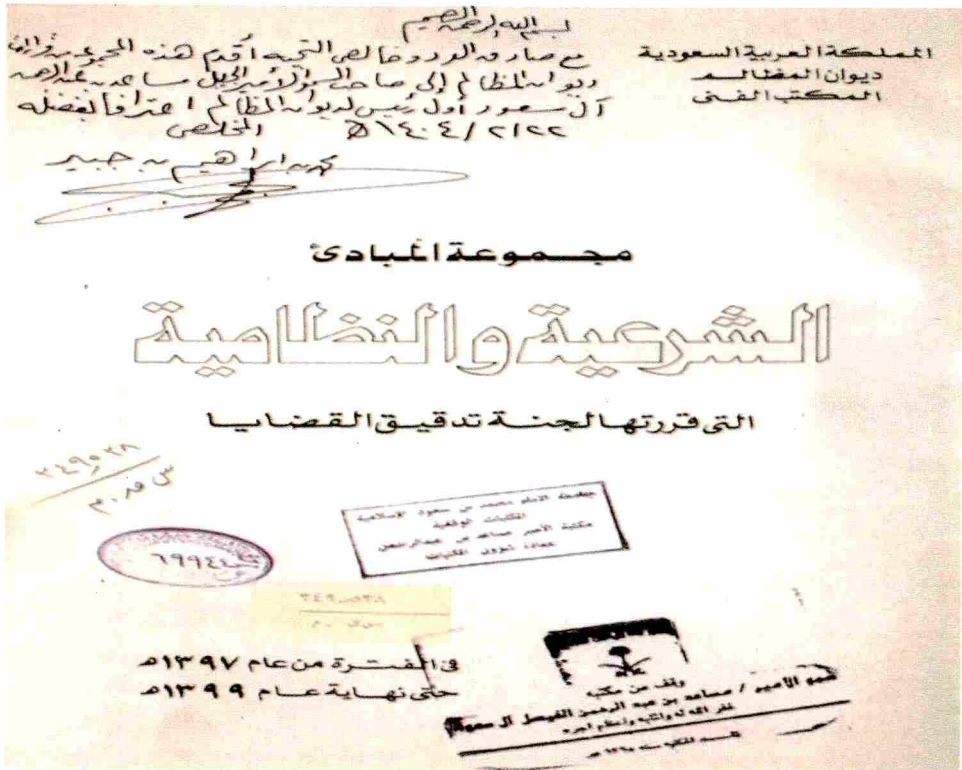 بسم الله الرحمن الرحيم
مع صادق الود وخالص التحية أقدم هذه المجموعة
ديوان المظالم إلى صاحب السمو الأمير الجليل مساعد بن عبد الرحمن
آل سعود أول رئيس لديوان المظالم اعترافا بفضله
١٤٠٤/٢/٢٢ هـ المخلص
محمد بن إبراهيم بن جبير
المملكة العربية السعودية
ديوان المظالم
المكتب الفنى
مجموعة المبادئ
الشرعية والنظامية
التى قررتها لجنة تدقيق القضايا
٣٤٩٫٥٣٨
جامعة الامام محمد بن سعود الإسلامية
المكتبات الوقفية
مكتبة الأمير مساعد بن عبدالرحمن
عمادة شؤون المكتبات
٦٩٩٤٤
٣٤٩٫٥٣٨
فى الفترة من عام ١٣٩٧هـ
حتى نهاية عام ١٣٩٩هـ
وقف من مكتبة
سمو الأمير / مساعد بن عبد الرحمن الفيصل آل سعود
غفر الله له ولوالديه وأعظم أجره